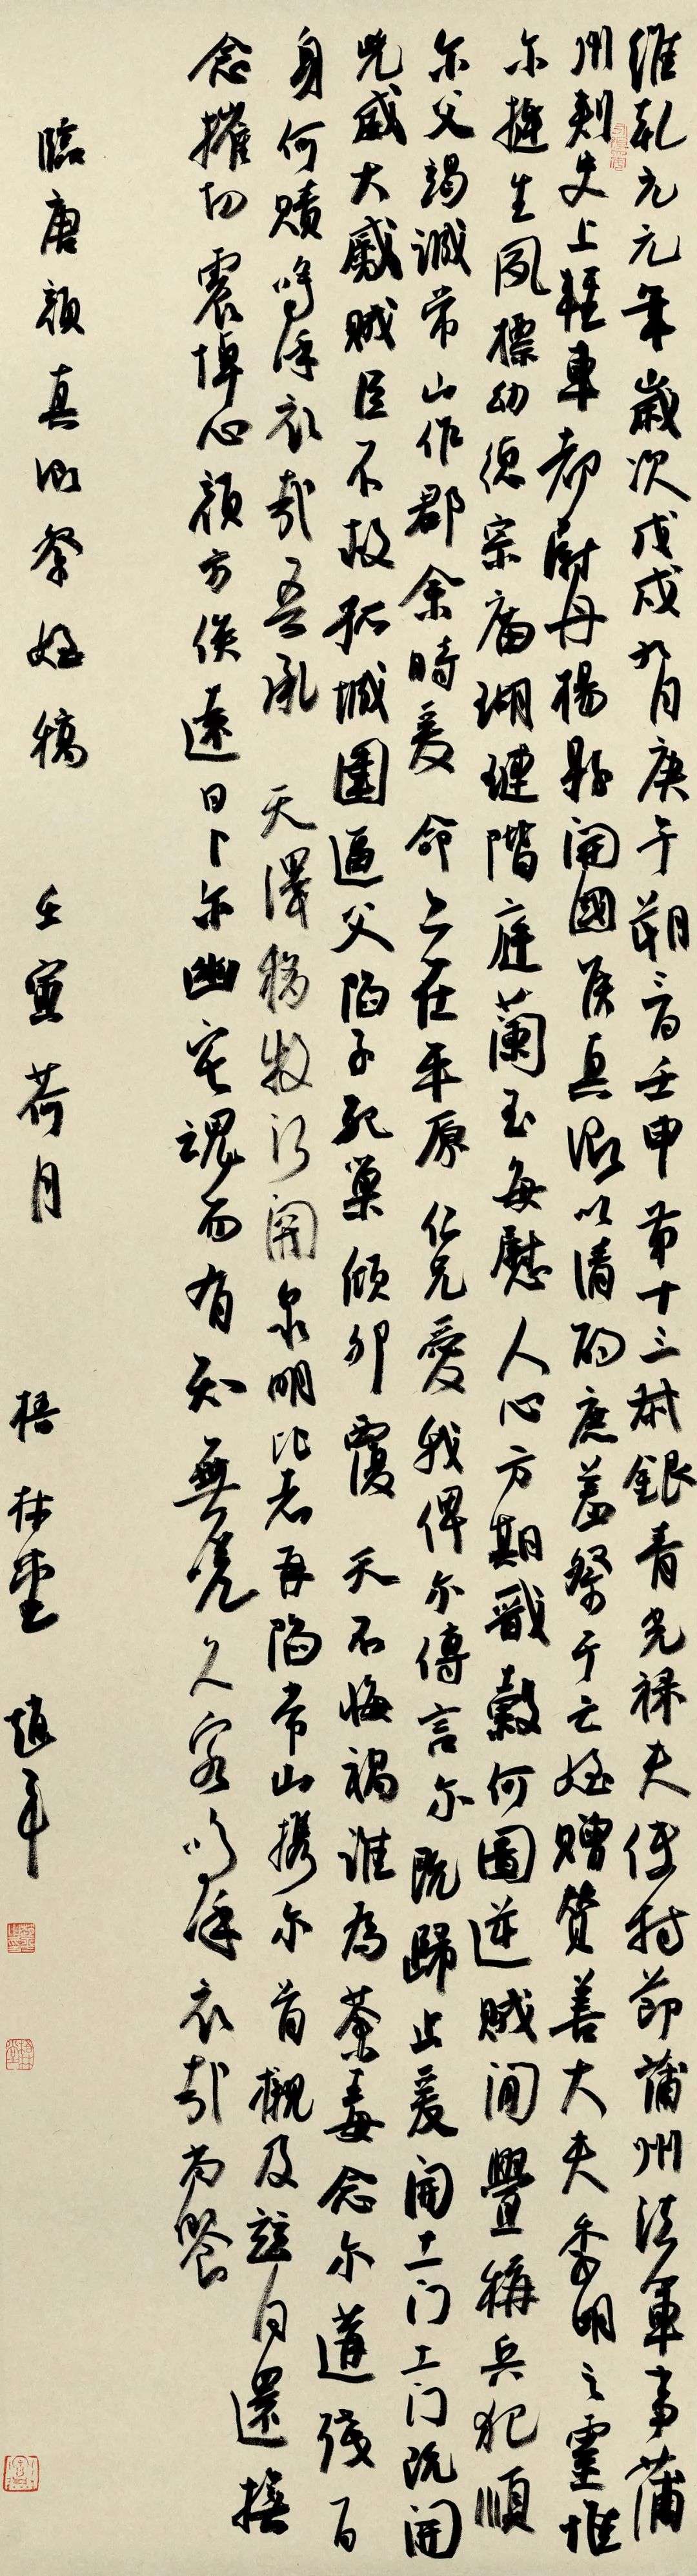 維乾元元年歲次戊戌九月庚午朔三日壬申第十三叔銀青光祿夫使持節蒲州諸軍事蒲
州刺史上輕車都尉丹楊縣開國侯真卿以清酌庶羞祭于亡姪贈贊善大夫季明之靈惟
尔挺生夙標幼德宗廟瑚璉階庭蘭玉每慰人心方期戩穀何圖逆賊閒釁稱兵犯順
尔父竭誠常山作郡余時受命亦在平原仁兄愛我俾尔傳言尔既歸止爰開土门土门既開
兇威大蹙賊臣不救孤城圍逼父陷子死巢傾卵覆天不悔禍誰為荼毒念尔遘殘百
身何贖嗚呼哀哉吾承天澤移牧河関泉明比者再陷常山携尔首櫬及茲同還撫
念摧切震悼心顏方俟遠日卜尔幽宅魂而有知無嗟久客嗚呼哀哉尚饗
臨唐顏真卿祭姪稿 壬寅荷月 梧林堂 趙平